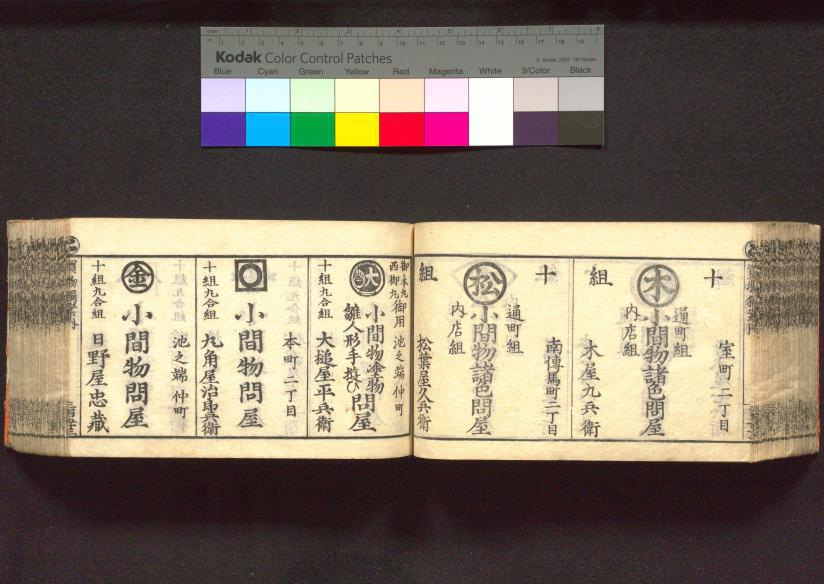 Kodak Color Control Patches
© Kodak, 2007 TM: Kodak
Blue Cyan Green Yellow Red Magenta White 3/Color Black
十組
室町二丁目
通町組
内店組
木
小間物諸色問屋
木屋九兵衛
十組
南傳馬町二丁目
通町組
内店組
松
小間物諸色問屋
松葉屋久兵衛
御本丸
西御丸
御用
池之端仲町
大
小間物塗物
雛人形手遊ひ
問屋
十組九合組
大槌屋平兵衛
本町二丁目
小間物問屋
十組九合組
丸角屋治郎兵衛
池之端仲町
金
小間物問屋
十組九合組
日野屋忠蔵